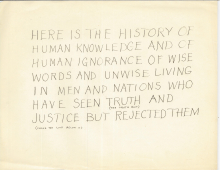 HERE IS THE HISTORY OF
HUMAN KNOWLEDGE AND OF
HUMAN IGNORANCE OF WISE
WORDS AND UNWISE LIVING
IN MEN AND NATIONS WHO
HAVE SEEN TRUTH AND
JUSTICE BUT REJECTED THEM